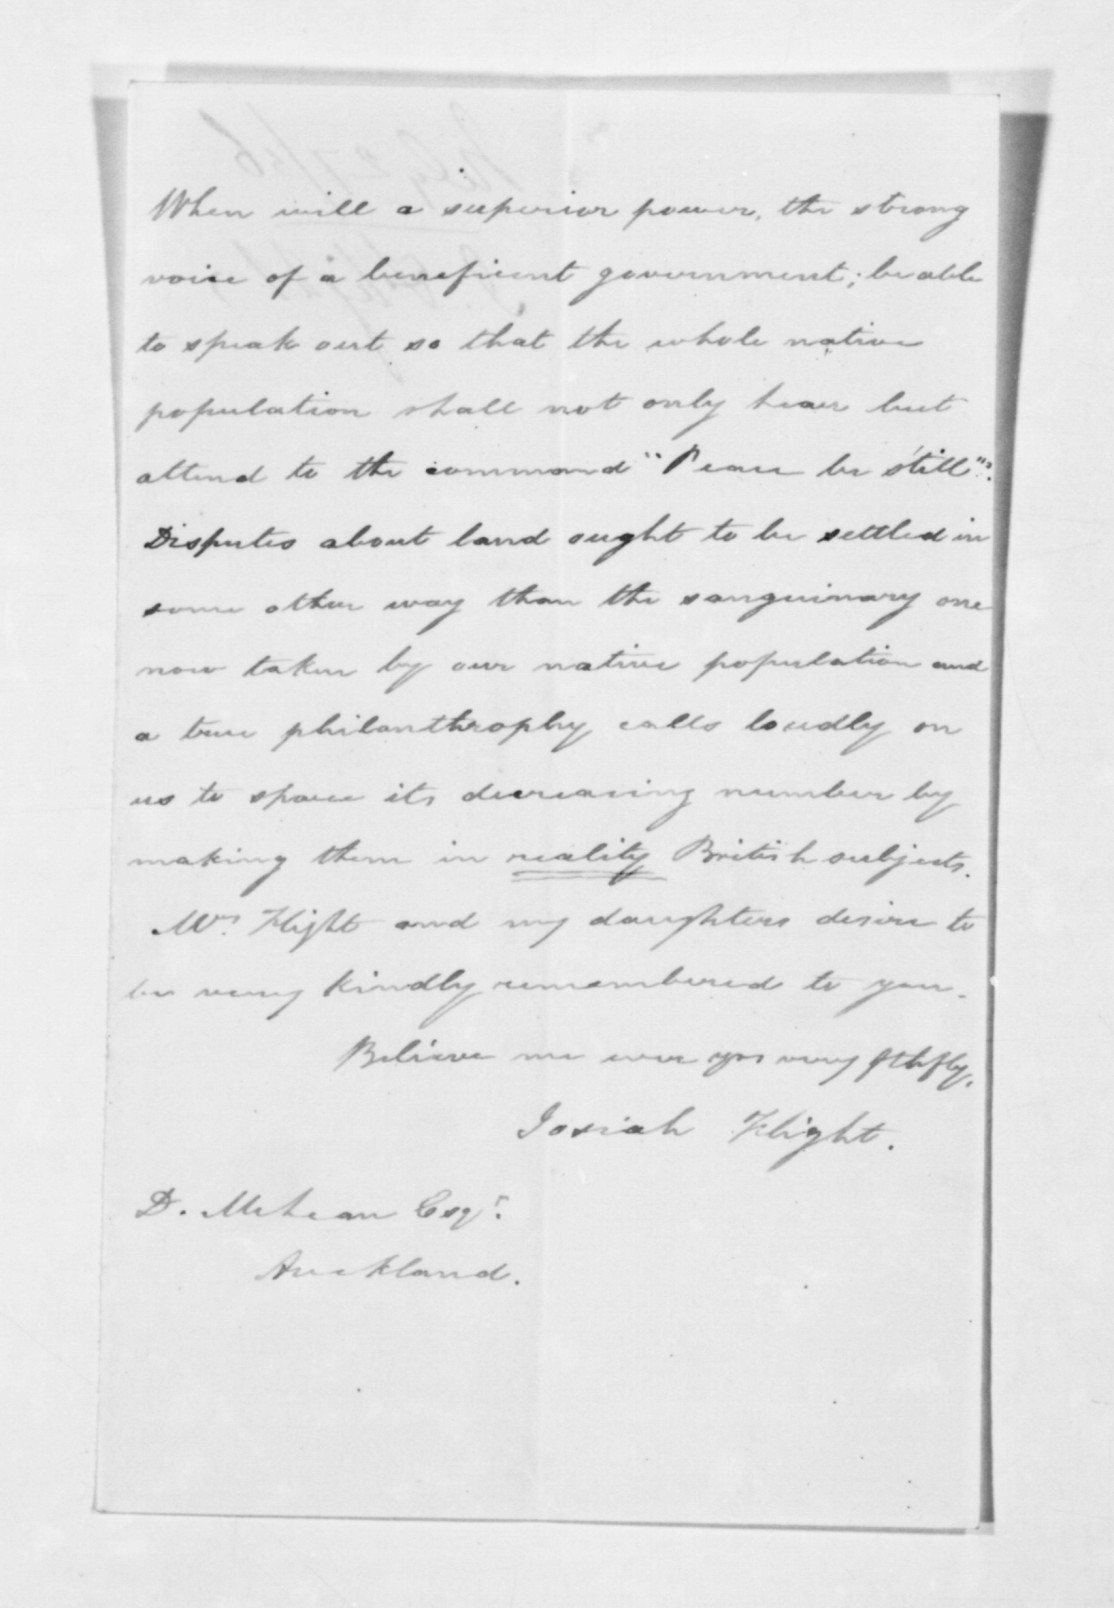 When will a superior power, the strong
voice of a beneficent government; be able
to speak out so that the whole native
population shall not only hear but
attend to the command "Peace be still"?
Disputes about land ought to be settled in
some other way than the sanguinary one
now taken by our native population and
a true philanthrophy calls loudly on
us to spare its decreasing number by
making them in reality British subjects.
Mrs. Flight and my daughters desire to
be very kindly remembered to you.
Believe me ever yrs very fthfly,
Josiah Flight.
D. McLean Esqr.
Auckland.